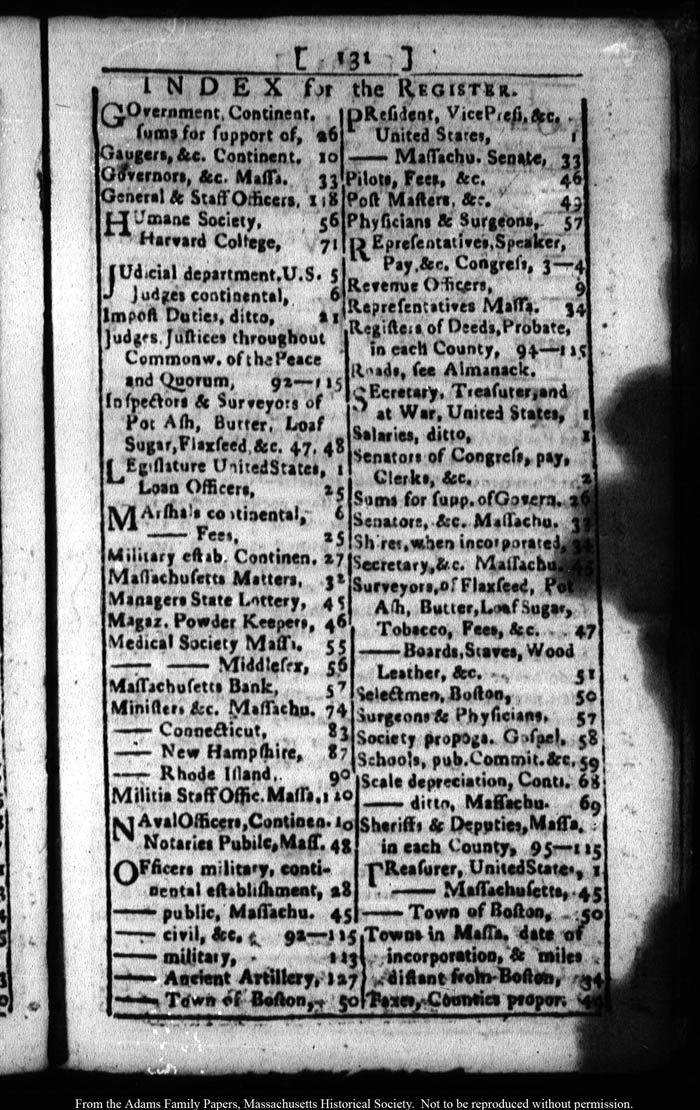 [ 131 ]
INDEX for the REGISTER.
GOvernment, Continent.
ſums for ſupport of, 26
Gaugers, &c. Continent. 10
Governors, &c. Maſſa. 33
General & Staff Officers, 118
HUmane Society, 56
Harvard College, 71
JUdicial department, U.S. 5
Judges continental, 6
Impoſt Duties, ditto, 21
Judges, Juſtices throughout
Commonw. of the Peace
and Quorum, 92—115
Inſpectors & Surveyors of
Pot Aſh, Butter, Loaf
Sugar, Flaxſeed, &c. 47, 48
LEgiſlature United States, 1
Loan Officers, 25
MArſhals continental, 6
—— Fees, 25
Military eſtab. Continen. 27
Maſſachuſetts Matters, 32
Managers State Lottery, 45
Magaz. Powder Keepers, 46
Medical Society Maſſ. 55
—— —— Middleſex, 56
Maſſachuſetts Bank, 57
Miniſters &c. Maſſachu. 74
—— Connecticut, 83
—— New Hampſhire, 87
—— Rhode Iſland, 90
Militia Staff Offic. Maſſa. 120
NAval Officers, Continen. 10
Notaries Public, Maſſ. 48
OFficers military, conti-
nental eſtabliſhment, 28
—— public, Maſſachu. 45
—— civil, &c. 92—115
—— military, 113
—— Ancient Artillery, 127
—— Town of Boſton, 50
PReſident, Vice Preſi, &c.
United States, 1
—— Maſſachu. Senate, 33
Pilots, Fees, &c. 46
Poſt Maſters, &c. 49
Phyſicians & Surgeons, 57
REpreſentatives, Speaker,
Pay, &c. Congreſs, 3—4
Revenue Officers, 9
Repreſentatives Maſſa. 34
Regiſters of Deeds, Probate,
in each County, 94—115
Roads, ſee Almanack.
SEcretary, Treaſurer, and
at War, United States, 1
Salaries, ditto, 1
Senators of Congreſs, pay,
Clerks, &c. 2
Sums for ſupp. of Govern. 26
Senators, &c. Maſſachu. 33
Shires, when incorporated, 34
Secretary, &c. Maſſachu. 45
Surveyors, of Flaxſeed, Pot
Aſh, Butter, Loaf Sugar,
Tobacco, Fees, &c. 47
—— Boards, Staves, Wood
Leather, &c. 51
Selectmen, Boſton, 50
Surgeons & Phyſicians, 57
Society propoga. Goſpel, 58
Schools, pub. Commit. &c. 59
Scale depreciation, Conti. 68
—— ditto, Maſſachu. 69
Sheriffs & Deputies, Maſſa.
in each County, 95—115
TReaſurer, United States, 1
—— Maſſachuſetts, 45
—— Town of Boſton, 50
Towns in Maſſa. date of
incorporation, & miles
diſtant from Boſton, 34
Taxes, Counties propor.
From the Adams Family Papers, Massachusetts Historical Society. Not to be reproduced without permission.